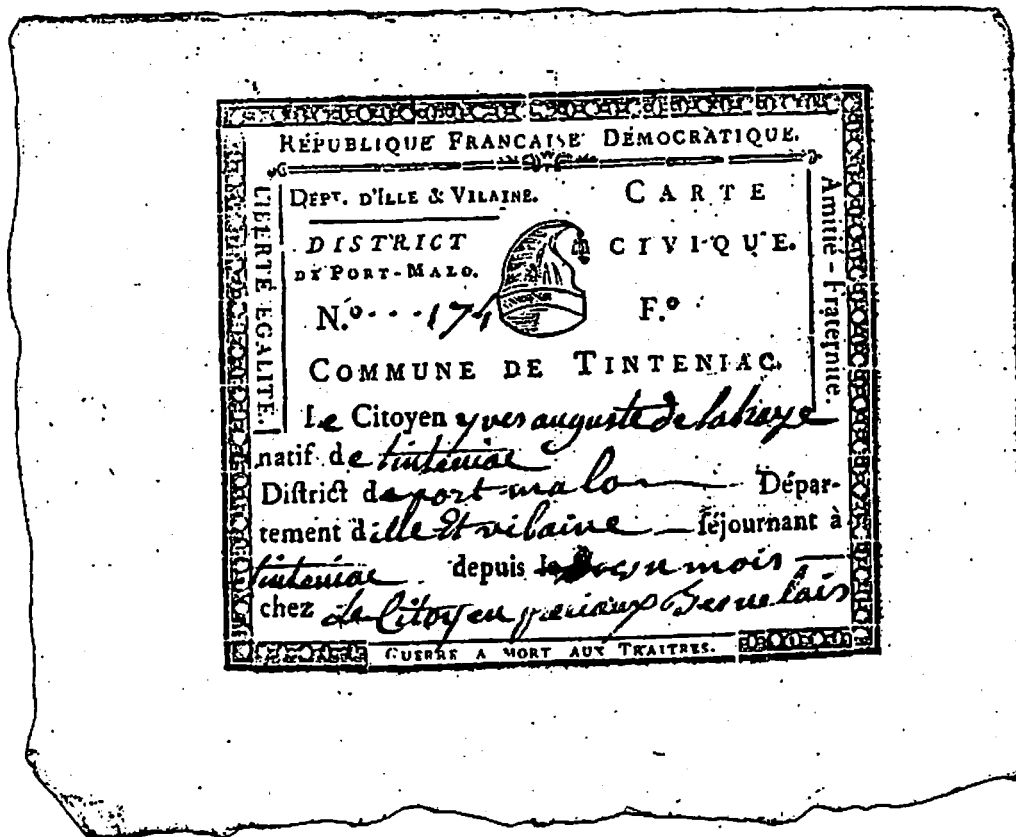 RÉPUBLIQUE FRANCAISE DÉMOCRATIQUE.
LIBERTÉ EGALITÉ.
DEPT. D'ILLE & VILAINE.
DISTRICT
DE PORT-MALO.
N.º 
CARTE
CIVIQUE.
F.º
Amitié - Fraternité.
COMMUNE DE TINTENIAC.
Le Citoyen yves auguste de lahaye
natif de tinteniac
Diſtrict de port malo Dépar-
tement dille Et vilaine ſéjournant à
tinteniac depuis un mois
chez le Citoyen
GUERRE A MORT AUX TRAITRES.